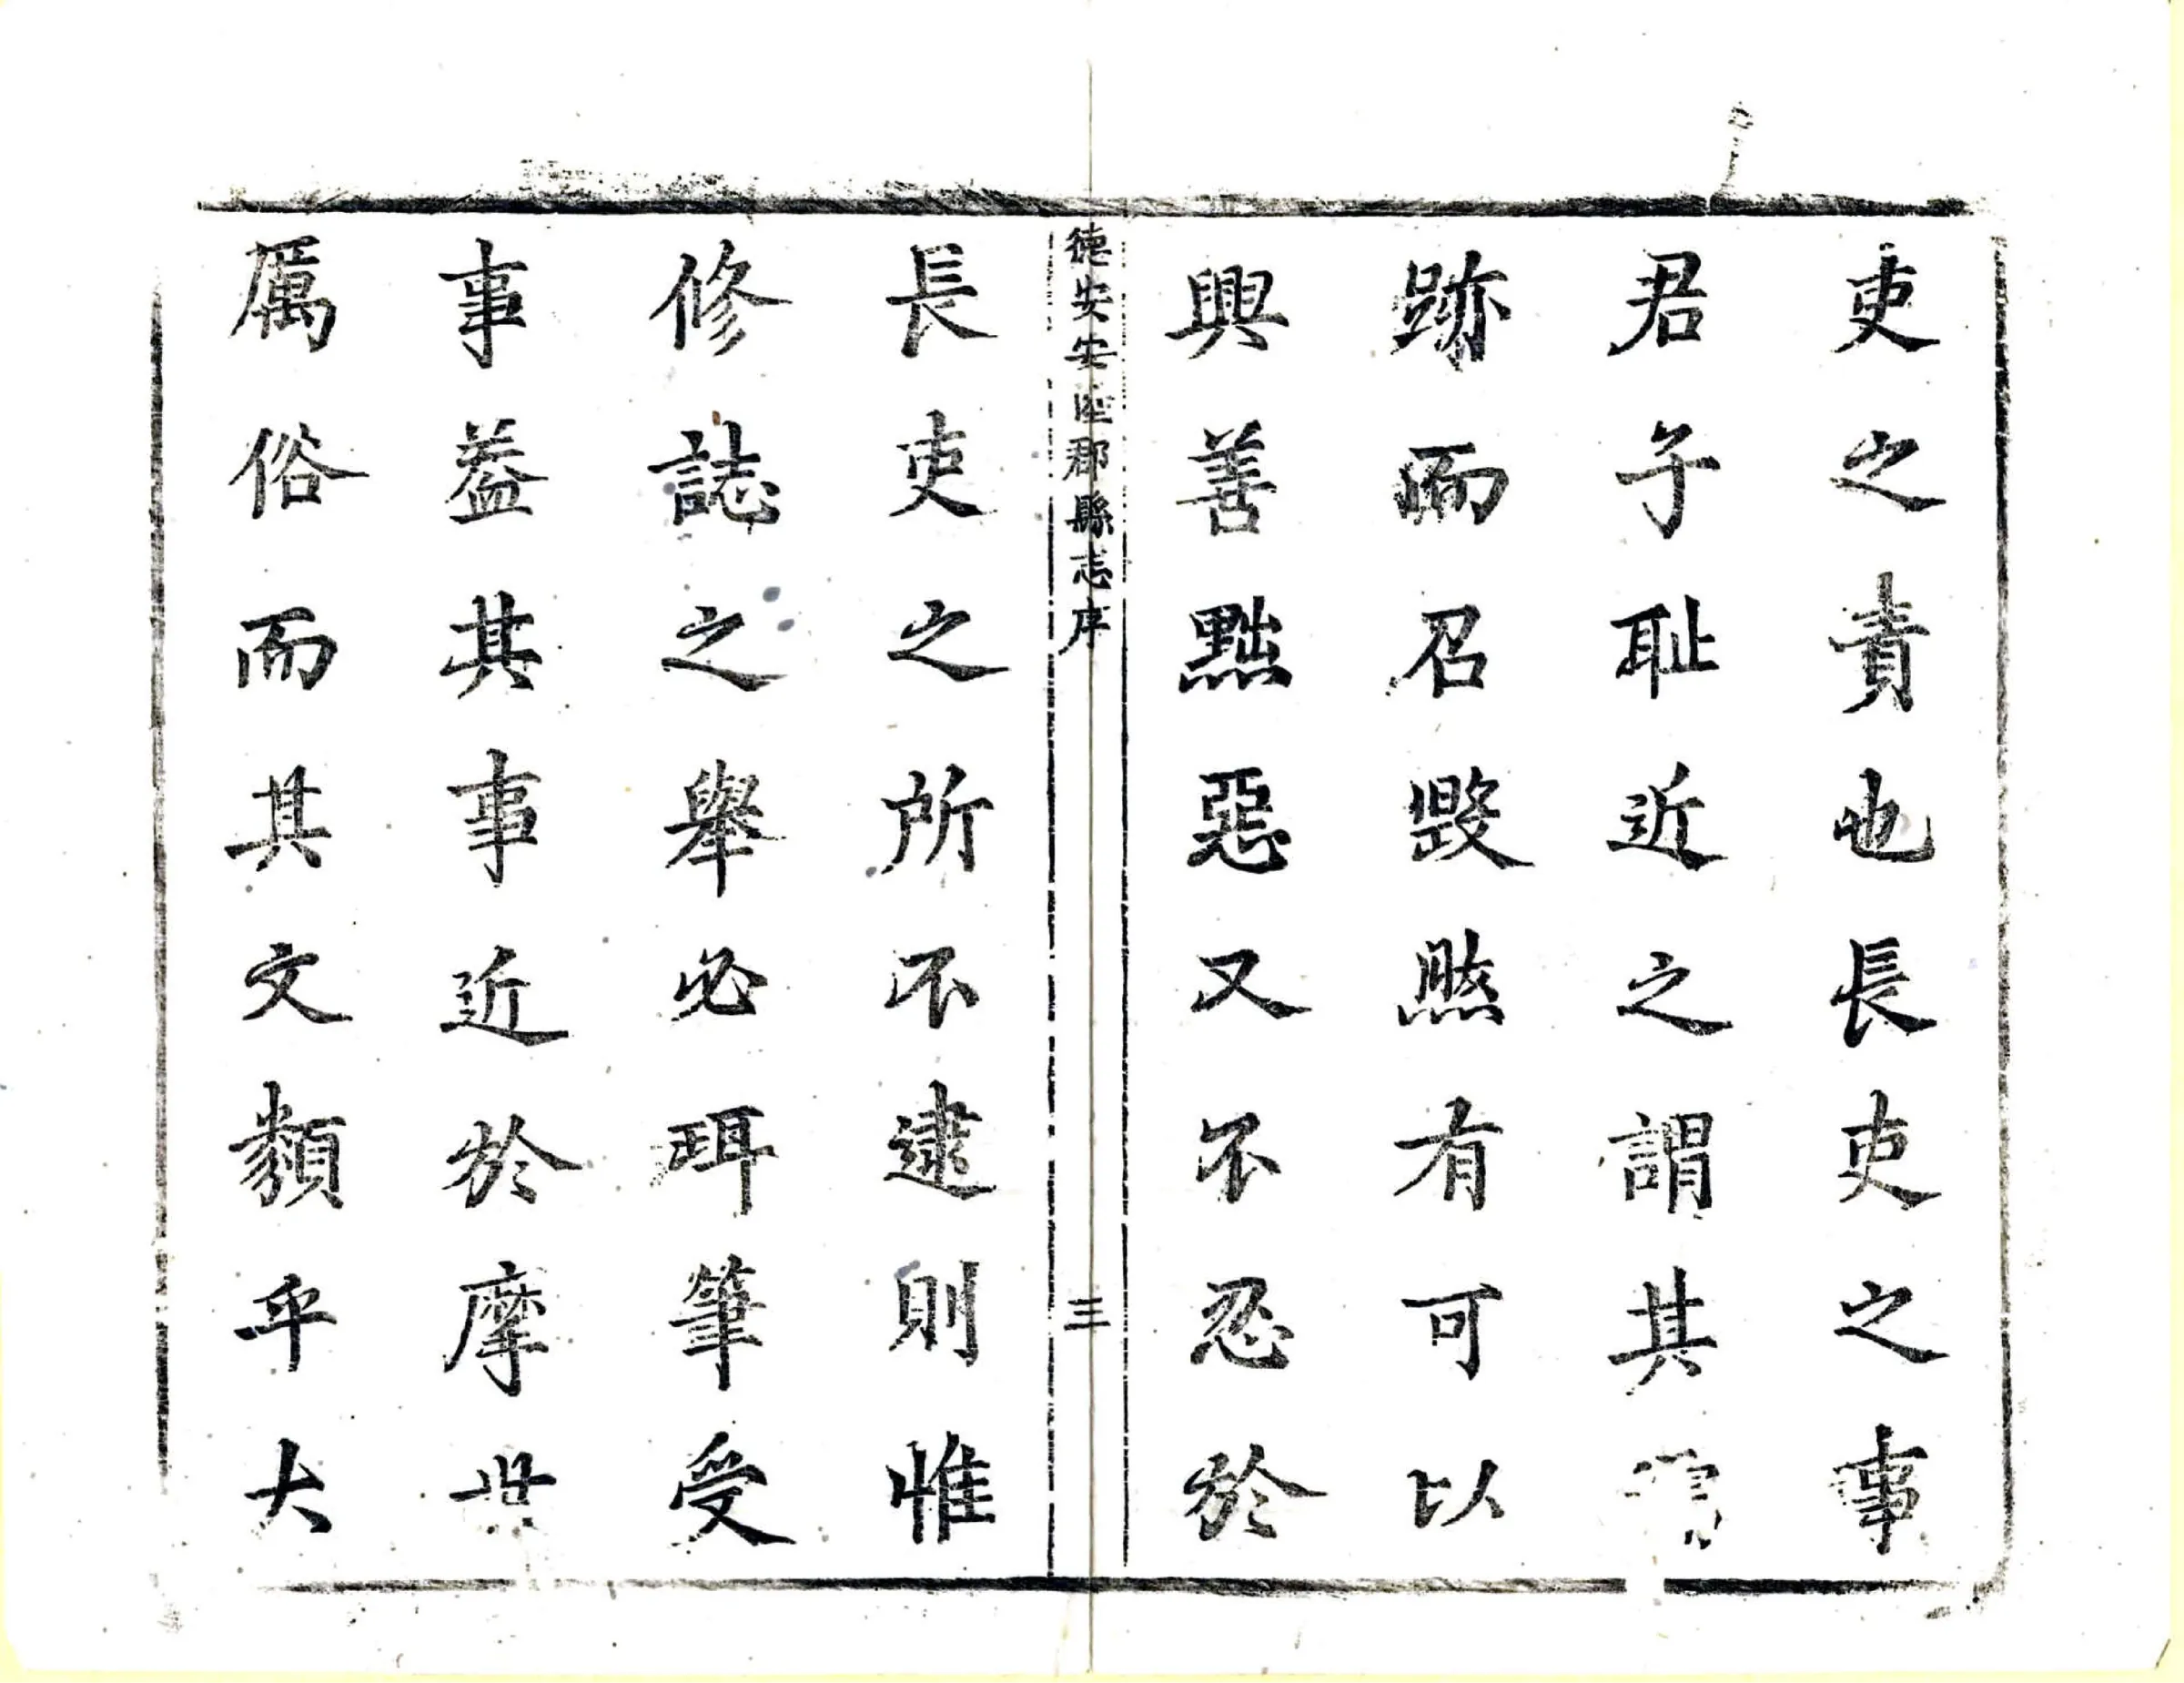 吏之責也長吏之事
君子耻近之謂其
跡而召毀㷊有可以
興善黜惡又不忍於
德安安陸郡縣志序
三
長吏之所不逮則惟
修誌之舉必珥筆受
事葢其事近於摩世
厲俗而其文類乎大